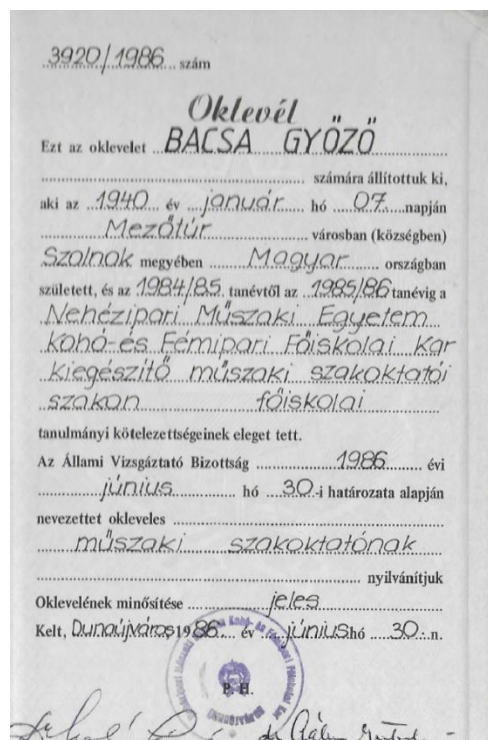 3920/1986 szám
Oklevél
Ezt az oklevelet BACSA GYŐZŐ
számára állítottuk ki,
aki az 1940 év január hó 07. napján
Mezőtúr városban (községben)
Szolnok megyében Magyar országban
született, és az 1984/85. tanévtől az 1985/86 tanévig a
Nehézipari Műszaki Egyetem
Kohó-és Fémipari Főiskolai Kar
kiegészítő műszaki szakoktatói
szakon főiskolai
tanulmányi kötelezettségeinek eleget tett.
Az Állami Vizsgáztató Bizottság 1986 évi
június hó 30.-i határozata alapján
nevezettet okleveles
műszaki szakoktatónak
nyilvánítjuk
Oklevelének minősítése jeles
Kelt, Dunaújváros 1986. év június hó 30. n.
P. H.